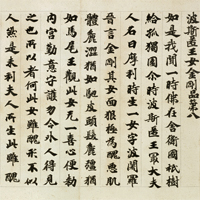 波斯匿王女金剛品第八
如是我聞一時佛在舍衛國祇樹
給孤獨園尒時波斯匿王最大夫
人名曰摩利時生一女字波闍羅
晉言金剛其女面狠極為醜惡肌
體麁澁猶如駝皮頭髮麁彊猶
如馬尾王觀此女无一喜心便勅
內宮勤意守護勿令外人得見
之也所以者何此女雖醜形不似
人然是末利夫人所生此雖醜